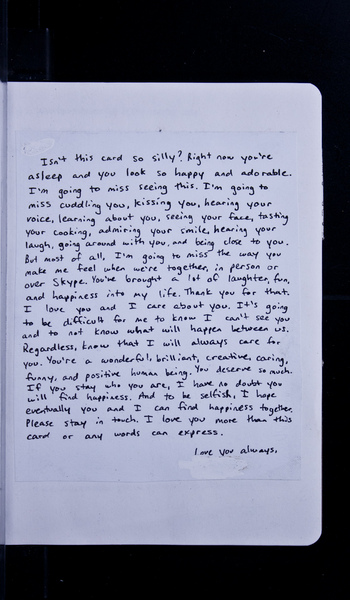 Isn't this card so silly? Right now you're
asleep and you look so happy and adorable.
I'm going to miss seeing this. I'm going to
miss cuddling you, kissing you, hearing your
voice, learning about you, seeing your face, tasting
your cooking, admiring your smile, hearing your
laugh, going around with you, and being close to you.
But most of all, I'm going to miss the way you
make me feel when we're together, in person or
over Skype. You've brought a lot of laughter, fun,
and happiness into my life. Thank you for that.
I love you and I care about you. It's going
to be difficult for me to know I can't see you
and to not know what will happen between us.
Regardless, know that I will always care for
you. You're a wonderful, brilliant, creative, caring,
funny, and positive human being. You deserve so much.
If you stay who you are, I have no doubt you
will find happiness. And to be selfish, I hope
eventually you and I can find happiness together.
Please stay in touch. I love you more than this
card or any words can express.
Love you always,